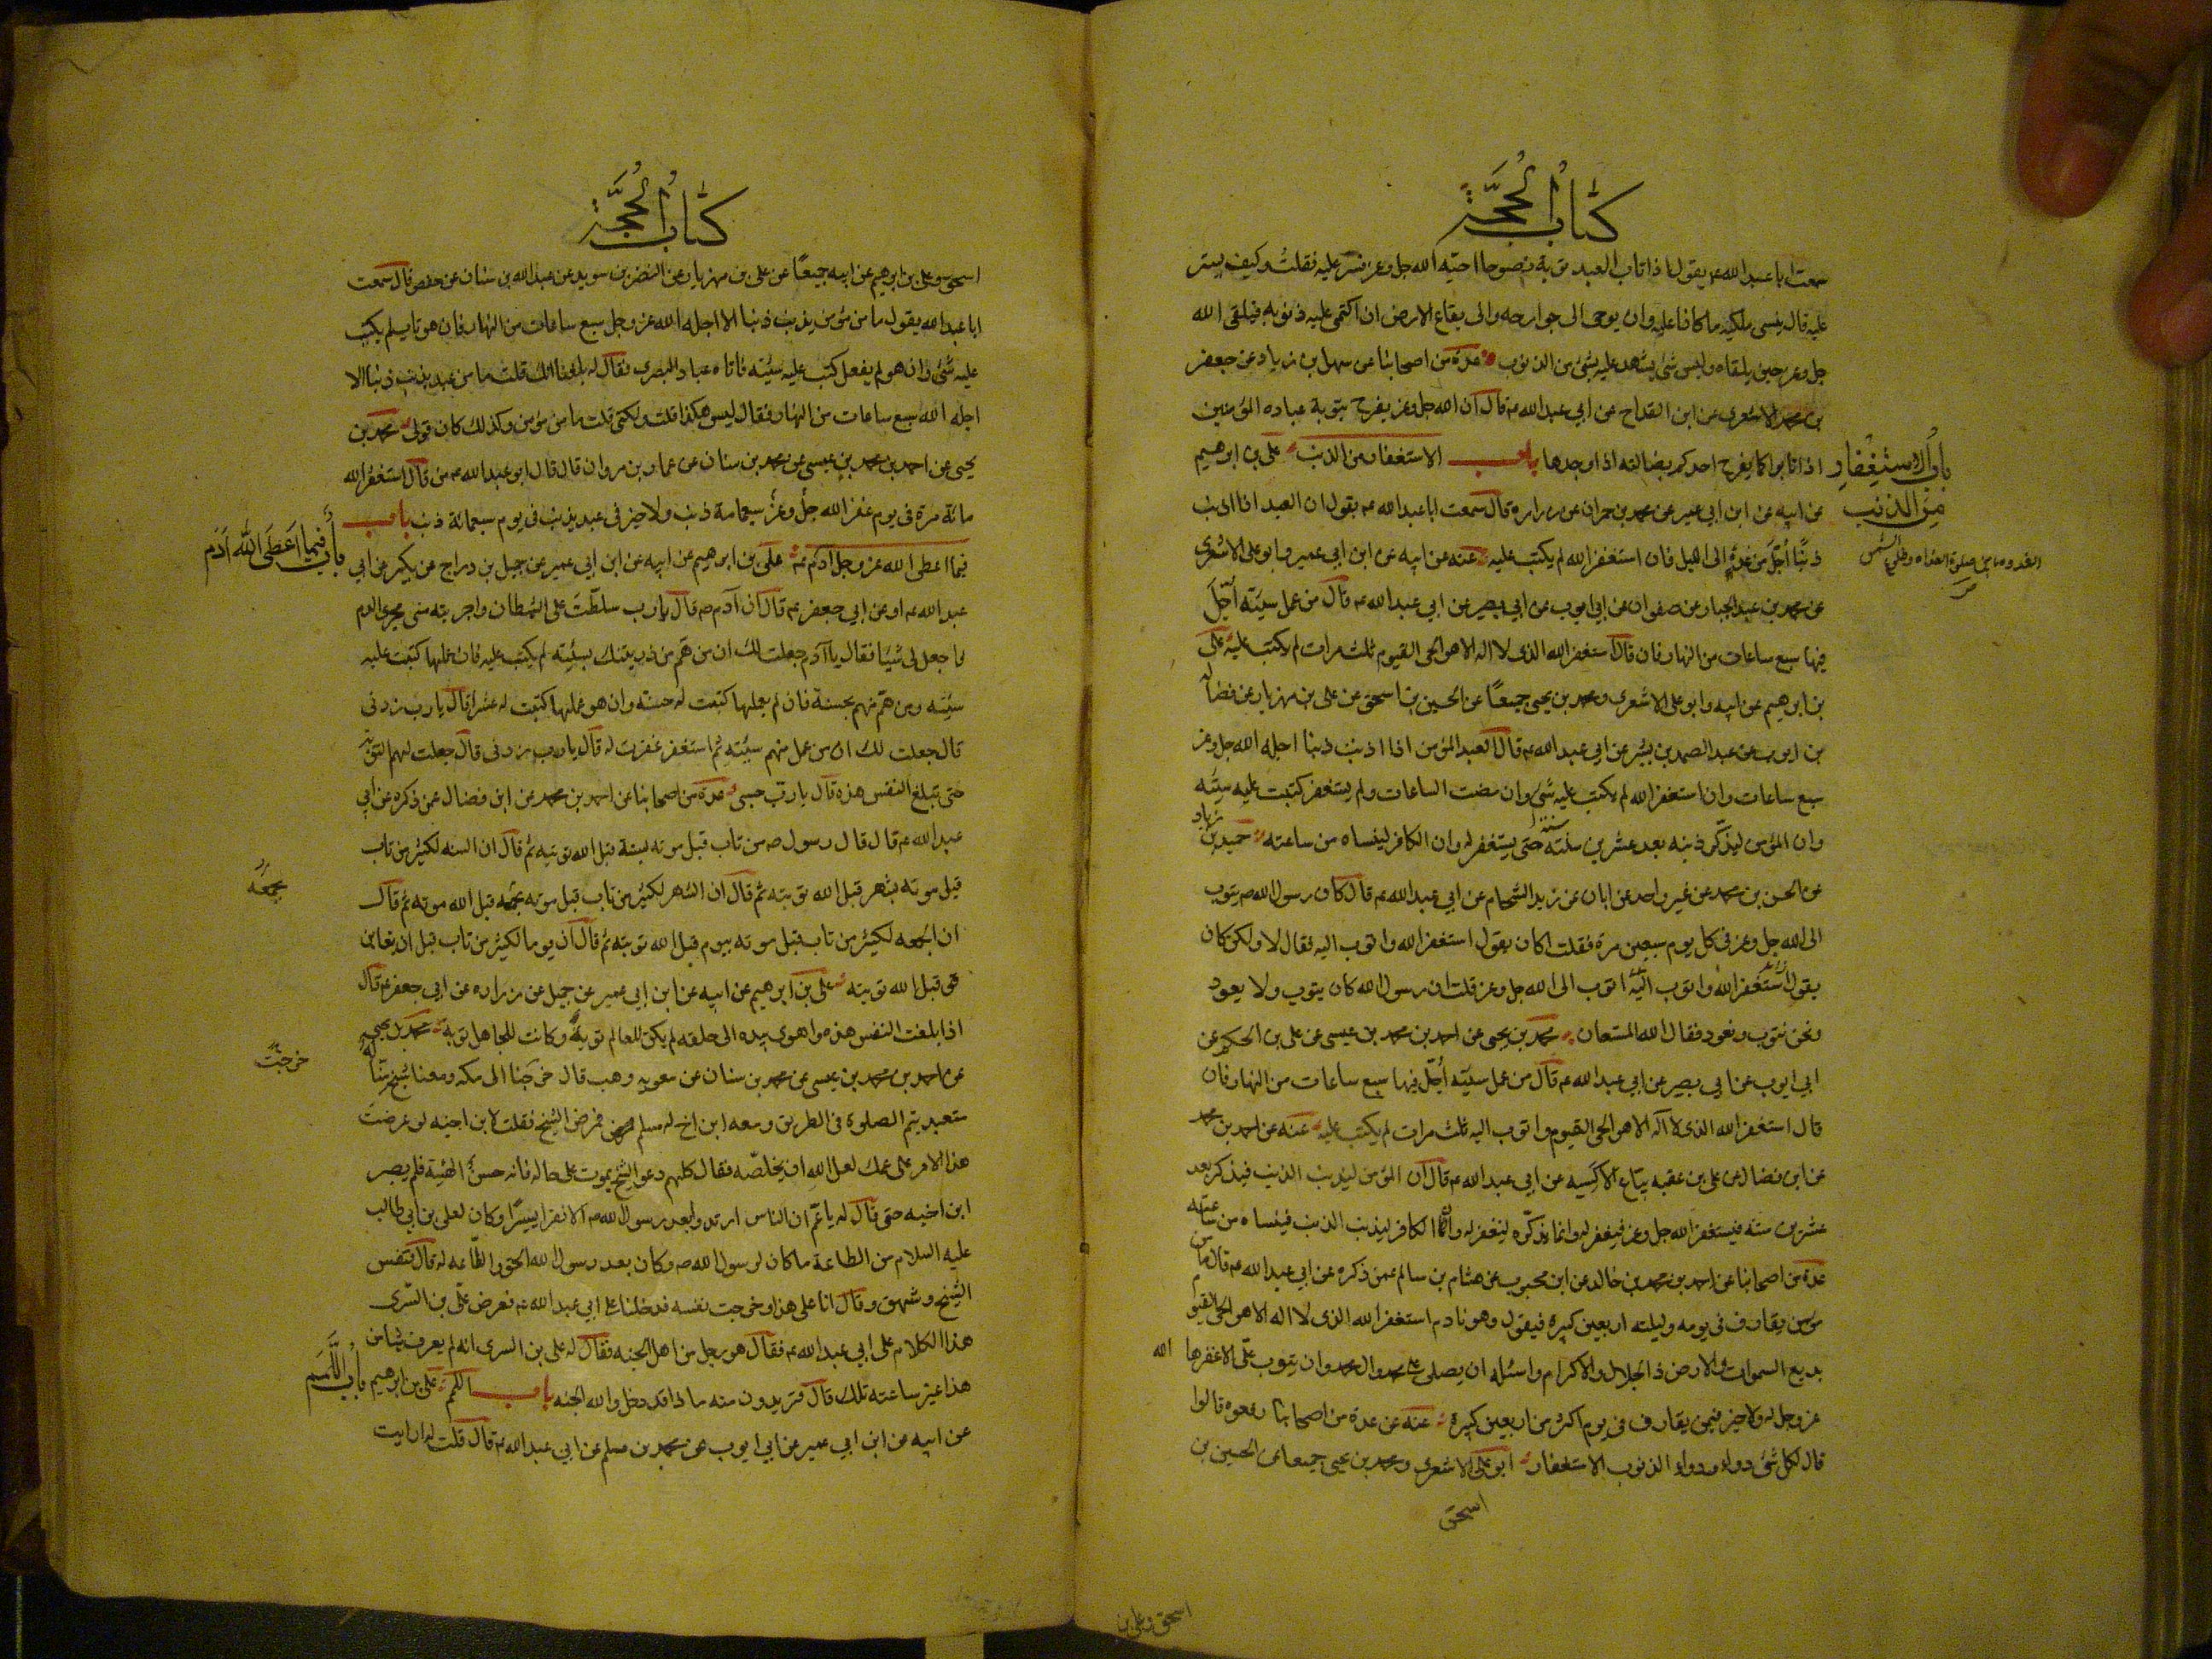 كتاب الحجة
سمعت ابا عبد الله عم يقول اذا تاب العبد توبة نصوحا احبه الله جل وعز فستر عليه فقلت وكيف يستر
عليه قال ينسى ملكيه ما كانا عليه وان يوحى الى جوارحه والى بقاع الارض ان اكتمى عليه ذنوبه فيلقى الله
جل وعز حين يلقاه وليس شئ يشهد عليه بشئ من الذنوب عدة من اصحابنا عن سهل بن زياد عن جعفر
بن محمد الاشعرى عن ابن القداح عن ابي عبد الله عم قال ان الله جل وعز يفرح بتوبة عباده المؤمنين
اذا تابوا كما يفرح احدكم بضالته اذا وجدها باب الاستغفار من الذنب على بن ابرهيم
باب الاستغفار
من الذنب
عن ابيه عن ابن ابي عمير عن محمد بن حمران عن زراره قال سمعت ابا عبد الله عم يقول ان العبد اذا اذنب
ذنبًا اُجّل من غدوّ الى الليل فان استغفر الله لم يكتب عليه عنه عن ابيه عن ابن ابي عمير وابو على الاشعرى
الغدو ما بين صلوة الغداه وطلوع الشمس
عن محمد بن عبد الجبار عن صفوان عن ابي ايوب عن ابي بصير عن ابي عبد الله عم قال من عمل سيئة اُجّل
فيها سبع ساعات من النهار فان قال استغفر الله الذى لا اله الا هو الحى القيوم ثلث مرات لم يكتب عليه على
بن ابرهيم عن ابيه وابو على الاشعرى ومحمد بن يحيى جميعًا عن الحسين بن اسحق عن على بن مهزيار عن فضاله
بن ايوب عن عبد الصمد بن بشير عن ابي عبد الله عم قال العبد المؤمن اذا اذنب ذنبا اجله الله جل وعز
سبع ساعات وان استغفر الله لم يكتب عليه شئ وان مضت الساعات ولم يستغفر كتبت عليه سيئه
وان المؤمن ليذكّر ذنبه بعد عشرين سنة حتى يستغفر له وان الكافر لينساه من ساعته حميد بن زياد
عن الحسن بن محمد عن غير واحد عن ابان عن زيد الشحام عن ابي عبد الله عم قال كان رسول الله ص يتوب
الى الله جل وعز في كل يوم سبعين مرة فقلت اكان يقول استغفر الله واتوب اليه فقال لا ولكن كان
يقول استغفر الله واتوب اليه اتوب الى الله جل وعز قلت ان رسول الله كان يتوب ولا يعود
ونحن نتوب ونعود فقال الله المستعان محمد بن يحيى عن احمد بن محمد بن عيسى عن على بن الحكم عن
ابي ايوب عن ابي بصير عن ابي عبد الله عم قال من عمل سيئة اُجّل فيها سبع ساعات من النهار فان
قال استغفر الله الذى لا اله الا هو الحى القيوم واتوب اليه ثلث مرات لم يكتب عليه عنه عن احمد بن محمد
عن ابن فضال عن على بن عقبه بياع الاكسيه عن ابي عبد الله عم قال ان المؤمن ليذنب الذنب فيذكر بعد
عشرين سنه فيستغفر الله جل وعز فيغفر له وانما يذكّره ليغفر له وانّ الكافر ليذنب الذنب فينساه من ساعته
عدة من اصحابنا عن احمد بن محمد بن خالد عن ابن محبوب عن هشام بن سالم عمن ذكره عن ابي عبد الله عم قال ما من
مؤمن يقارف فى يومه وليلته اربعين كبيره فيقول وهو نادم استغفر الله الذى لا اله الا هو الحى القيوم
بديع السموات والارض ذا الجلال والاكرام واسئله ان يصلى على محمد وال محمد وان يتوب علىّ الا غفرها الله
عز وجل له ولا خير فيمن يقارف فى يوم اكثر من اربعين كبيرة عنه عن عدة من اصحابنا رفعوه قالوا
قال لكل شئ دواء ودواء الذنوب الاستغفار ابو على الاشعرى ومحمد بن يحيى جميعا عن الحسين بن
اسحق
اسحق وعلى بن
كتاب الحجة
اسحق وعلى بن ابرهيم عن ابيه جميعًا عن على بن مهزيار عن النضر بن سويد عن عبد الله بن سنان عن حفص قال سمعت
ابا عبد الله يقول ما من مؤمن يذنب ذنبا الا اجله الله عز وجل سبع ساعات من النهار فان هو تاب لم يكتب
عليه شئ وان هو لم يفعل كتب عليه سيئه فاتاه عباد البصرى فقال له بلغنا انك قلت ما من عبد يذنب ذنبا الا
اجله الله سبع ساعات من النهار فقال ليس هكذا قلت ولكنى قلت ما من مؤمن وكذلك كان قولى محمد بن
يحيى عن احمد بن محمد بن عيسى عن محمد بن سنان عن عمار بن مروان قال قال ابو عبد الله عم من قال استغفر الله
مائة مرة فى يوم غفر الله جل وعز سبعمامة ذنب ولا خير فى عبد يذنب فى يوم سبعمائة ذنب باب
باب فيما اعطى الله ادم
فيما اعطى الله عز وجل ادم عم على بن ابرهيم عن ابيه عن ابن ابي عمير عن جميل بن دراج عن بكير عن ابي
عبد الله عم او عن ابي جعفر عم قال ان آدم ص قال يا رب سلطت على الشيطان واجريته منى مجرى الدم
فاجعل لى شيئا فقال يا آدم جعلت لك ان من هم من ذريتك بسيئه لم يكتب عليه فان عملها كتبت عليه
سيئه ومن هم منهم بحسنة فان لم يعملها كتبت له حسنه وان هو عملها كتبت له عشرا قال يا رب زدنى
قال جعلت لك ان من عمل منهم سيئه ثم استغفر غفرت له قال يا رب زدنى قال جعلت لهم التوبة
حتى تبلغ النفس هذه قال يا رب حسبى عدة من اصحابنا عن احمد بن محمد عن ابن فضال عمن ذكره عن ابي
عبد الله عم قال قال رسول ص من تاب قبل موته بسنة قبل الله توبته ثم قال ان السنه لكثير من تاب
قبل موته بشهر قبل الله توبته ثم قال ان الشهر لكثير من تاب قبل موته بجمعه قبل الله موته ثم قال
بجمعه
ان الجمعه لكثير من تاب قبل موته بيوم قبل الله توبته ثم قال ان يوما لكثير من تاب قبل ان يعاين
قبل الله توبته على بن ابرهيم عن ابيه عن ابن ابي عمير عن جميل عن زراره عن ابي جعفر عم قال
اذا بلغت النفس هذه واهوى بيده الى حلقه لم يكن للعالم توبة وكانت للجاهل توبة محمد بن يحيى
عن احمد بن محمد بن عيسى عن محمد بن سنان عن معويه وهب قال خرجنا الى مكه ومعنا شيخ متأله
خرجت
متعبد يتم الصلوة فى الطريق ومعه ابن اخ له مسلم فمرض الشيخ فقلت لابن اخيه لو عرضت
هذا الامر على عمك لعل الله ان يخلصه فقال كلهم دعوا الشيخ يموت على حاله فانه حسن الهيئة فلم يصبر
ابن اخيه حتى قال له يا عمّ ان الناس ارتدوا بعد رسول الله ص الا نفرا يسيرًا وكان لعلى بن ابي طالب
عليه السلام من الطاعة ما كان لرسول الله ص وكان بعد رسول الله الحق والطاعه له قال فتنفس
الشيخ وشهق وقال انا على هذا وخرجت نفسه فدخلنا على ابي عبد الله عم فعرض علىّ بن السّرى
هذا الكلام على ابي عبد الله عم فقال هو رجل من اهل الجنه فقال له على بن السرى انه لم يعرف شيئا من
هذا غير ساعته تلك قال فتريدون منه ماذا قد دخل والله الجنه باب اللمم على بن ابرهيم
باب اللمم
عن ابيه عن ابن ابي عمير عن ابي ايوب عن محمد بن مسلم عن ابي عبد الله عم قال قلت له ارايت